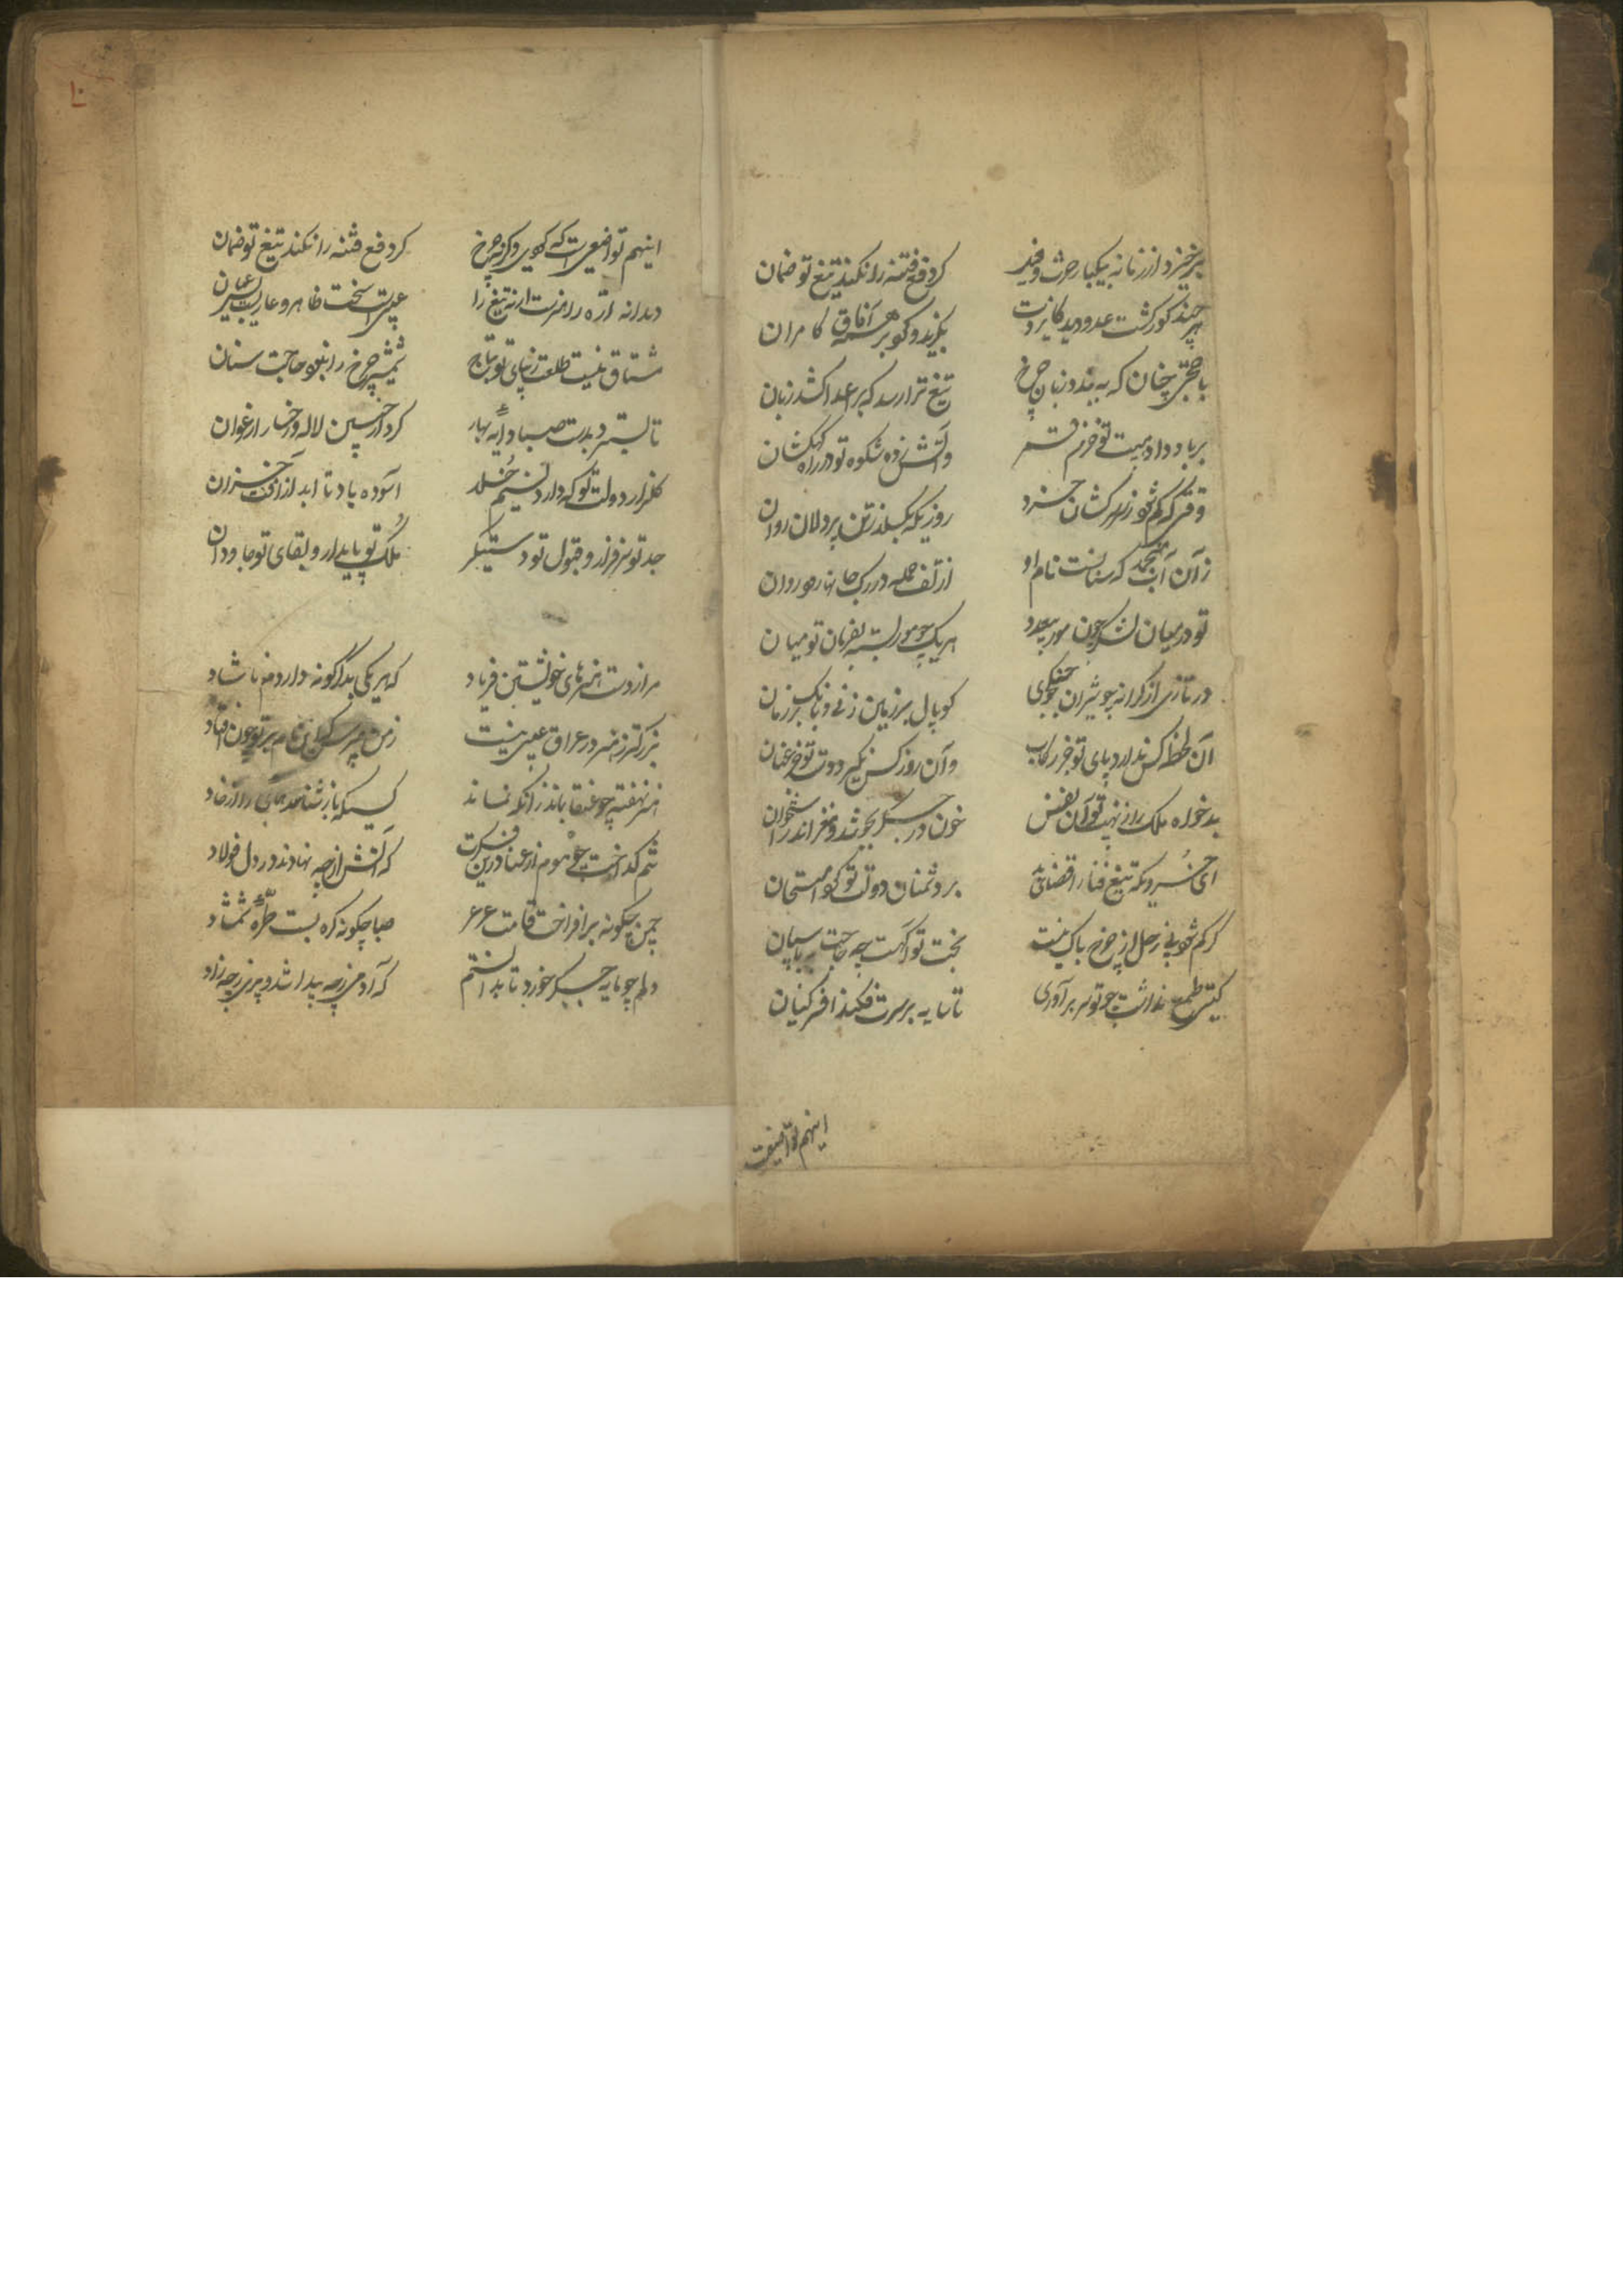 برخیزد از زمانه بیکبار حرث و قید گر دفع فتنه را نکند تیغ تو ضمان
هر چند کور گشت عدو دید کایزدت بگزید و کرد بر همه آفاق کامران
با حجتی چنان که ببندد زبان چرخ تیغ ترا رسد که بر اعدا کشد زبان
بر باد داد هیبت تو خرمن قمر و آتش زده شکوه تو در راه کهکشان
روزی که بگسلد ز تن پردلان روان
زان آب منجمد که سنانست نام او از تف حمله در رگ جانها بود روان
تو در میان لشکر چون مور بیعدد هر یک چو مور بسته بفرمان تو میان
در تازی از کرانه چو شیران جنگجوی کوپال بر زمین زنی و بانک بر زمان
آن لحظه کس ندارد پای تو جز رکاب و آن روز کس نگیرد دست تو جز عنان
بدخواه ملک را ز نهیب تو آن نفس خون در جگر بجوشد و مغز اندر استخوان
ای خسروی که تیغ فنا را قضای بد بر دشمنان دولت تو کرد امتحان
گر کم شود زحل ز پی چرخ باک نیست بخت تو آگهست چه حاجت به پاسبان
گیتی طمع نداشت چو تو سر برآوری تا سایه بر سرت فکند افسر کیان
اینهم تواضعیست
اینهم تواضعیست که گوئی و گرنه چرخ گر دفع فتنه را نکند تیغ تو ضمان
دندانه اره را ضرتست ارنه تیغ را عیبی است سخت ظاهر و عاریست بس عیان
مشتاق نیست طلعت زیبای تو بتاج شمشیر چرخ را نبود حاجت سنان
تا بسترد بدست صبا دایه بهار گرد از جبین لاله و رخسار ارغوان
گلزار دولت تو که دارد نسیم خلد آسوده باد تا ابد از آفت خزان
جد تو سرفراز و قبول تو دستگیر ملک تو پایدار و بقای تو جاودان
مرا ز دست هنرهای خویشتن فریاد که هر یکی بدگرگونه داردم ناشاد
بزرگتر ز هنر در عراق عیبی نیست ز من مپرس که این نام بر تو چون افتاد
هنر نهفته چو عنقا بماند زانکه نماند کسیکه باز شناسد همای را از خاد
تنم گداخت چو موم از عنا درین فکرت که آتش از چه نهادند در دل فولاد
چمن چگونه برافراخت قامت عرعر صبا چگونه گره بست طره شمشاد
دلم چه مایه جگر خورد تا بدانستم که آدمی ز چه پیدا شد و پری ز چه زاد